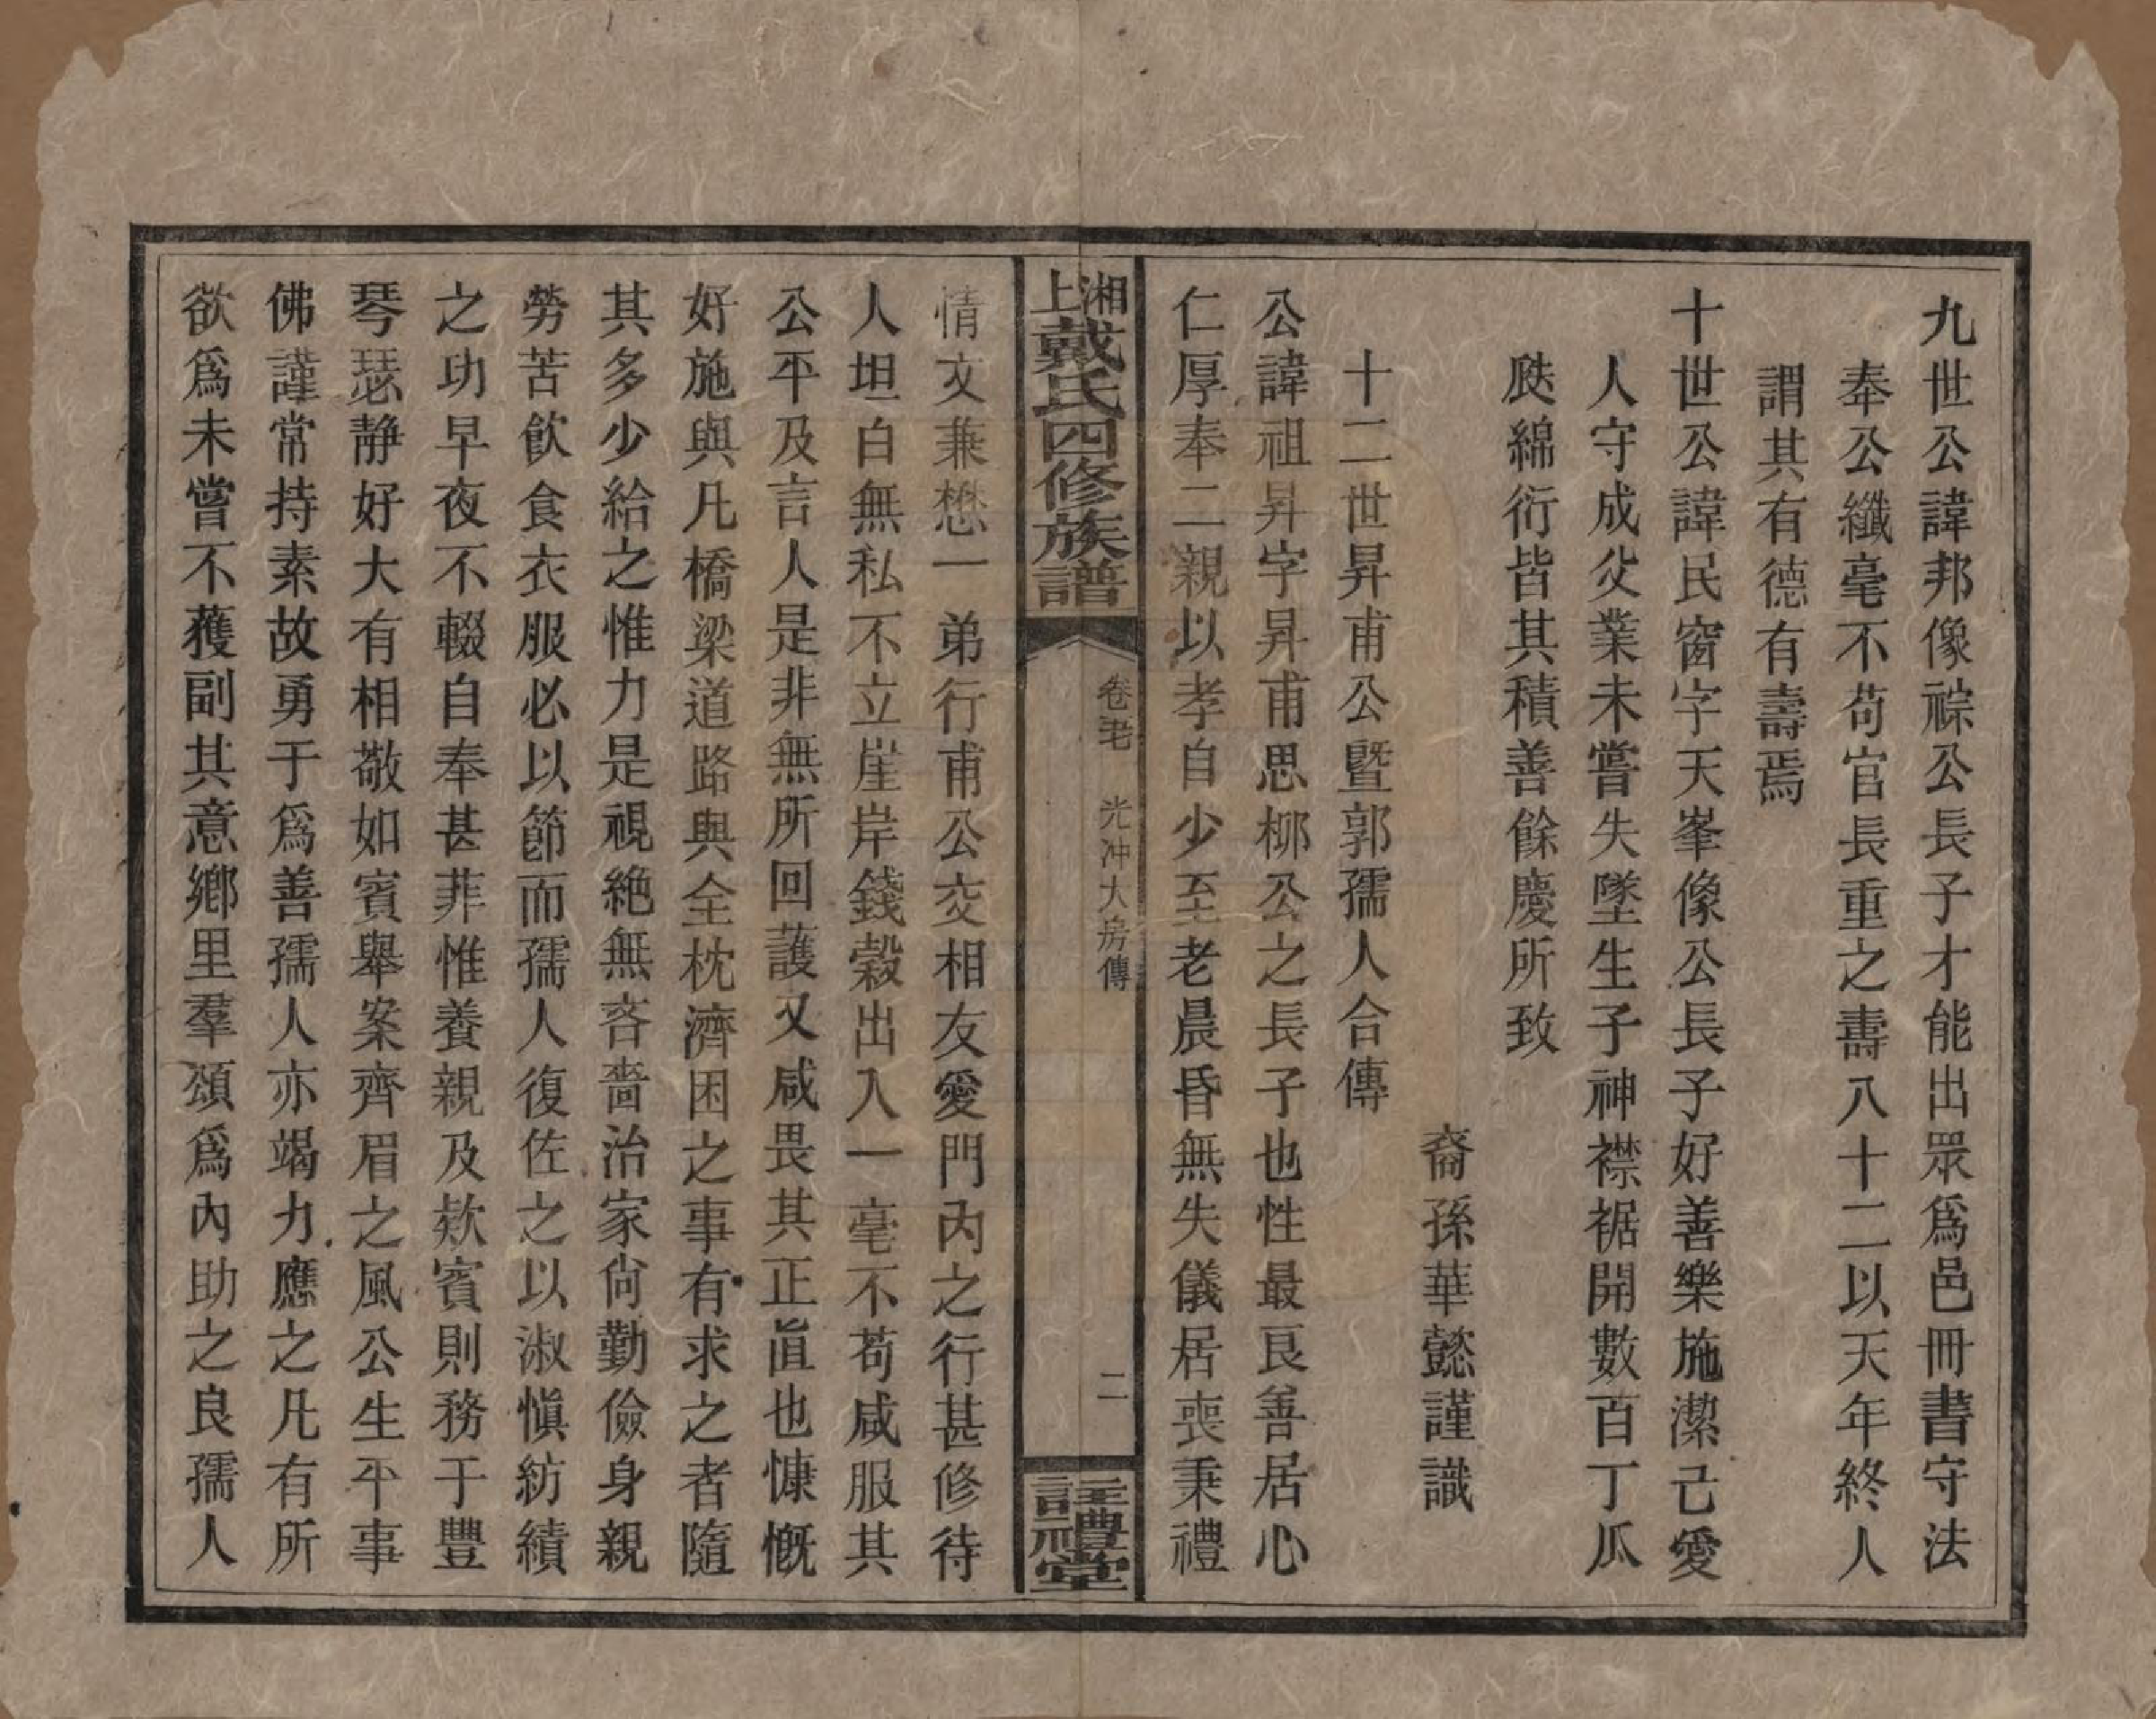 九世公諱邦像祿公長子才能出眾爲邑冊書守法
奉公纖毫不苟官長重之壽八十二以天年終人
謂其有德有壽焉
十世公諱民窗字天峯像公長子好善樂施潔己愛
人守成父業未嘗失墜生子神襟裾開數百丁瓜
瓞綿衍皆其積善餘慶所致
裔孫華懿謹識
十二世昇甫公暨郭孺人合傳
公諱祖昇字昇甫思柳公之長子也性最良善居心
仁厚奉二親以孝自少至老晨昏無失儀居喪秉禮
湘上戴氏四修族譜
卷
光冲大房傳
二
註禮堂
情文兼懋一弟行甫公交相友愛門內之行甚修待
人坦白無私不立崖岸錢穀出入一毫不苟咸服其
公平及言人是非無所回護又咸畏其正直也慷慨
好施與凡橋梁道路與全枕濟困之事有求之者隨
其多少給之惟力是視絕無吝嗇治家尙勤儉身親
勞苦飮食衣服必以節而孺人復佐之以淑愼紡績
之功早夜不輟自奉甚菲惟養親及欵賓則務于豐
琴瑟静好大有相敬如賓舉案齊眉之風公生平事
佛謹常持素故勇于爲善孺人亦竭力應之凡有所
欲爲未嘗不獲副其意鄉里羣頌爲內助之良孺人